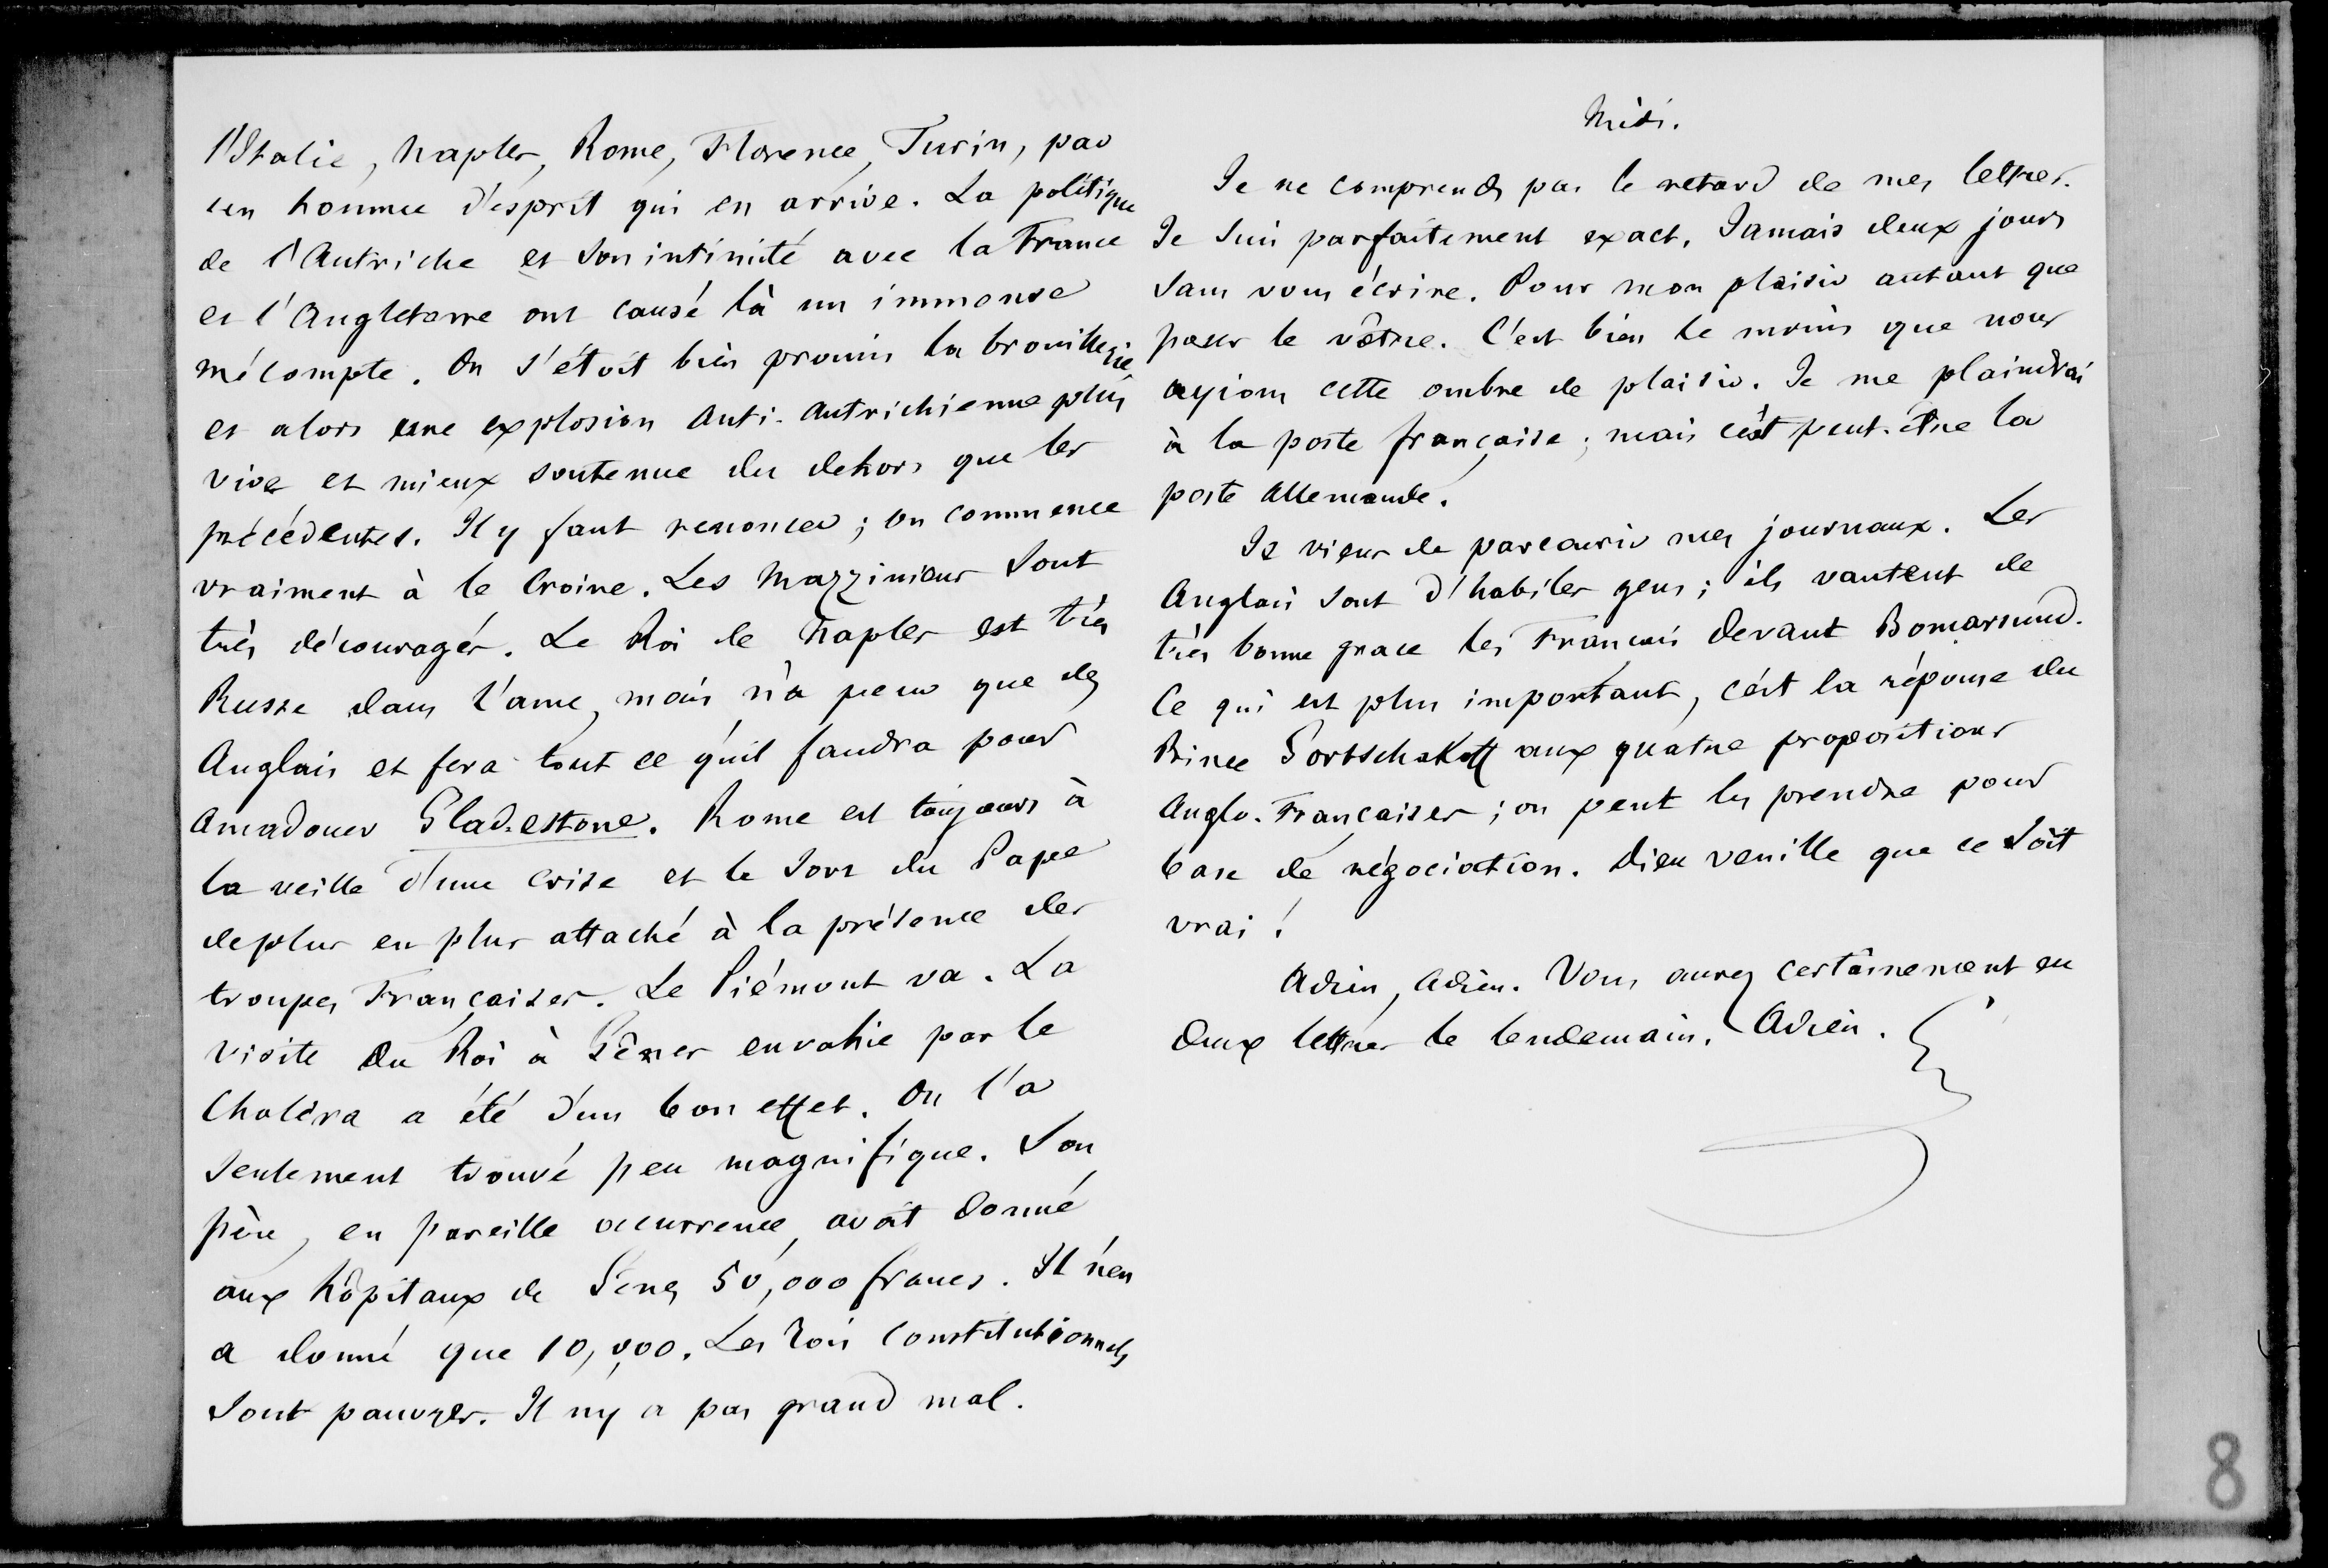 l'Italie, Naples, Rome, Florence, Turin, par
un homme d'esprit qui en arrive. La politique
de l'Autriche et son intimité avec la France
et l'Angleterre ont causé là un immense
mécompte. On s'étoit bien promis la brouillerie
et alors une explosion anti-autrichienne plus
vive et mieux soutenue du dehors que les
précédentes. Il y faut renoncer ; on commence
vraiment à le croire. Les Mazziniens sont
très découragés. Le Roi de Naples est très
Russe dans l'ame, mais n'a peur que des
Anglais et fera tout ce qu'il faudra pour
amadouer Glad.estone. Rome est toujours à
la veille d'une crise et le sort du Pape
de plus en plus attaché à la présence des
troupes Françaises. Le Piémont va. La
visite du Roi à Gênes envahie par le
Choléra a été d'un bon effet. On l'a
seulement trouvé peu magnifique. Son
père, en pareille occurrence, avoit donné
aux hôpitaux de Gênes 50,000 francs. Il n'en
a donné que 10,000. Les rois constitutionnels
sont pauvres. Il n'y a pas grand mal.
Midi.
Je ne comprends pas le retard de mes lettres.
Je suis parfaitement exact. Jamais deux jours
sans vous écrire. Pour mon plaisir autant que
pour le vôtre. C'est bien le moins que nous
ayions cette ombre de plaisir. Je me plaindrai
à la poste française ; mais c'est peut-être la
poste allemande.
Je viens de parcourir mes journaux. Les
Anglais sont d'habiles gens ; ils vantent de
très bonne grace les Français devant Bomarsund.
Ce qui est plus important, c'est la réponse du
Prince Gortschakoff aux quatre propositions
Anglo-Françaises ; on peut les prendre pour
base de négociation. Dieu veuille que ce soit
vrai !
Adieu, Adieu. Vous aurez certainement eu
deux lettres le lendemain. Adieu.
8